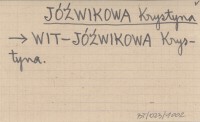 JÓŹWIKOWA Krystyna
→ WIT-JÓŹWIKOWA Krys-
tyna.